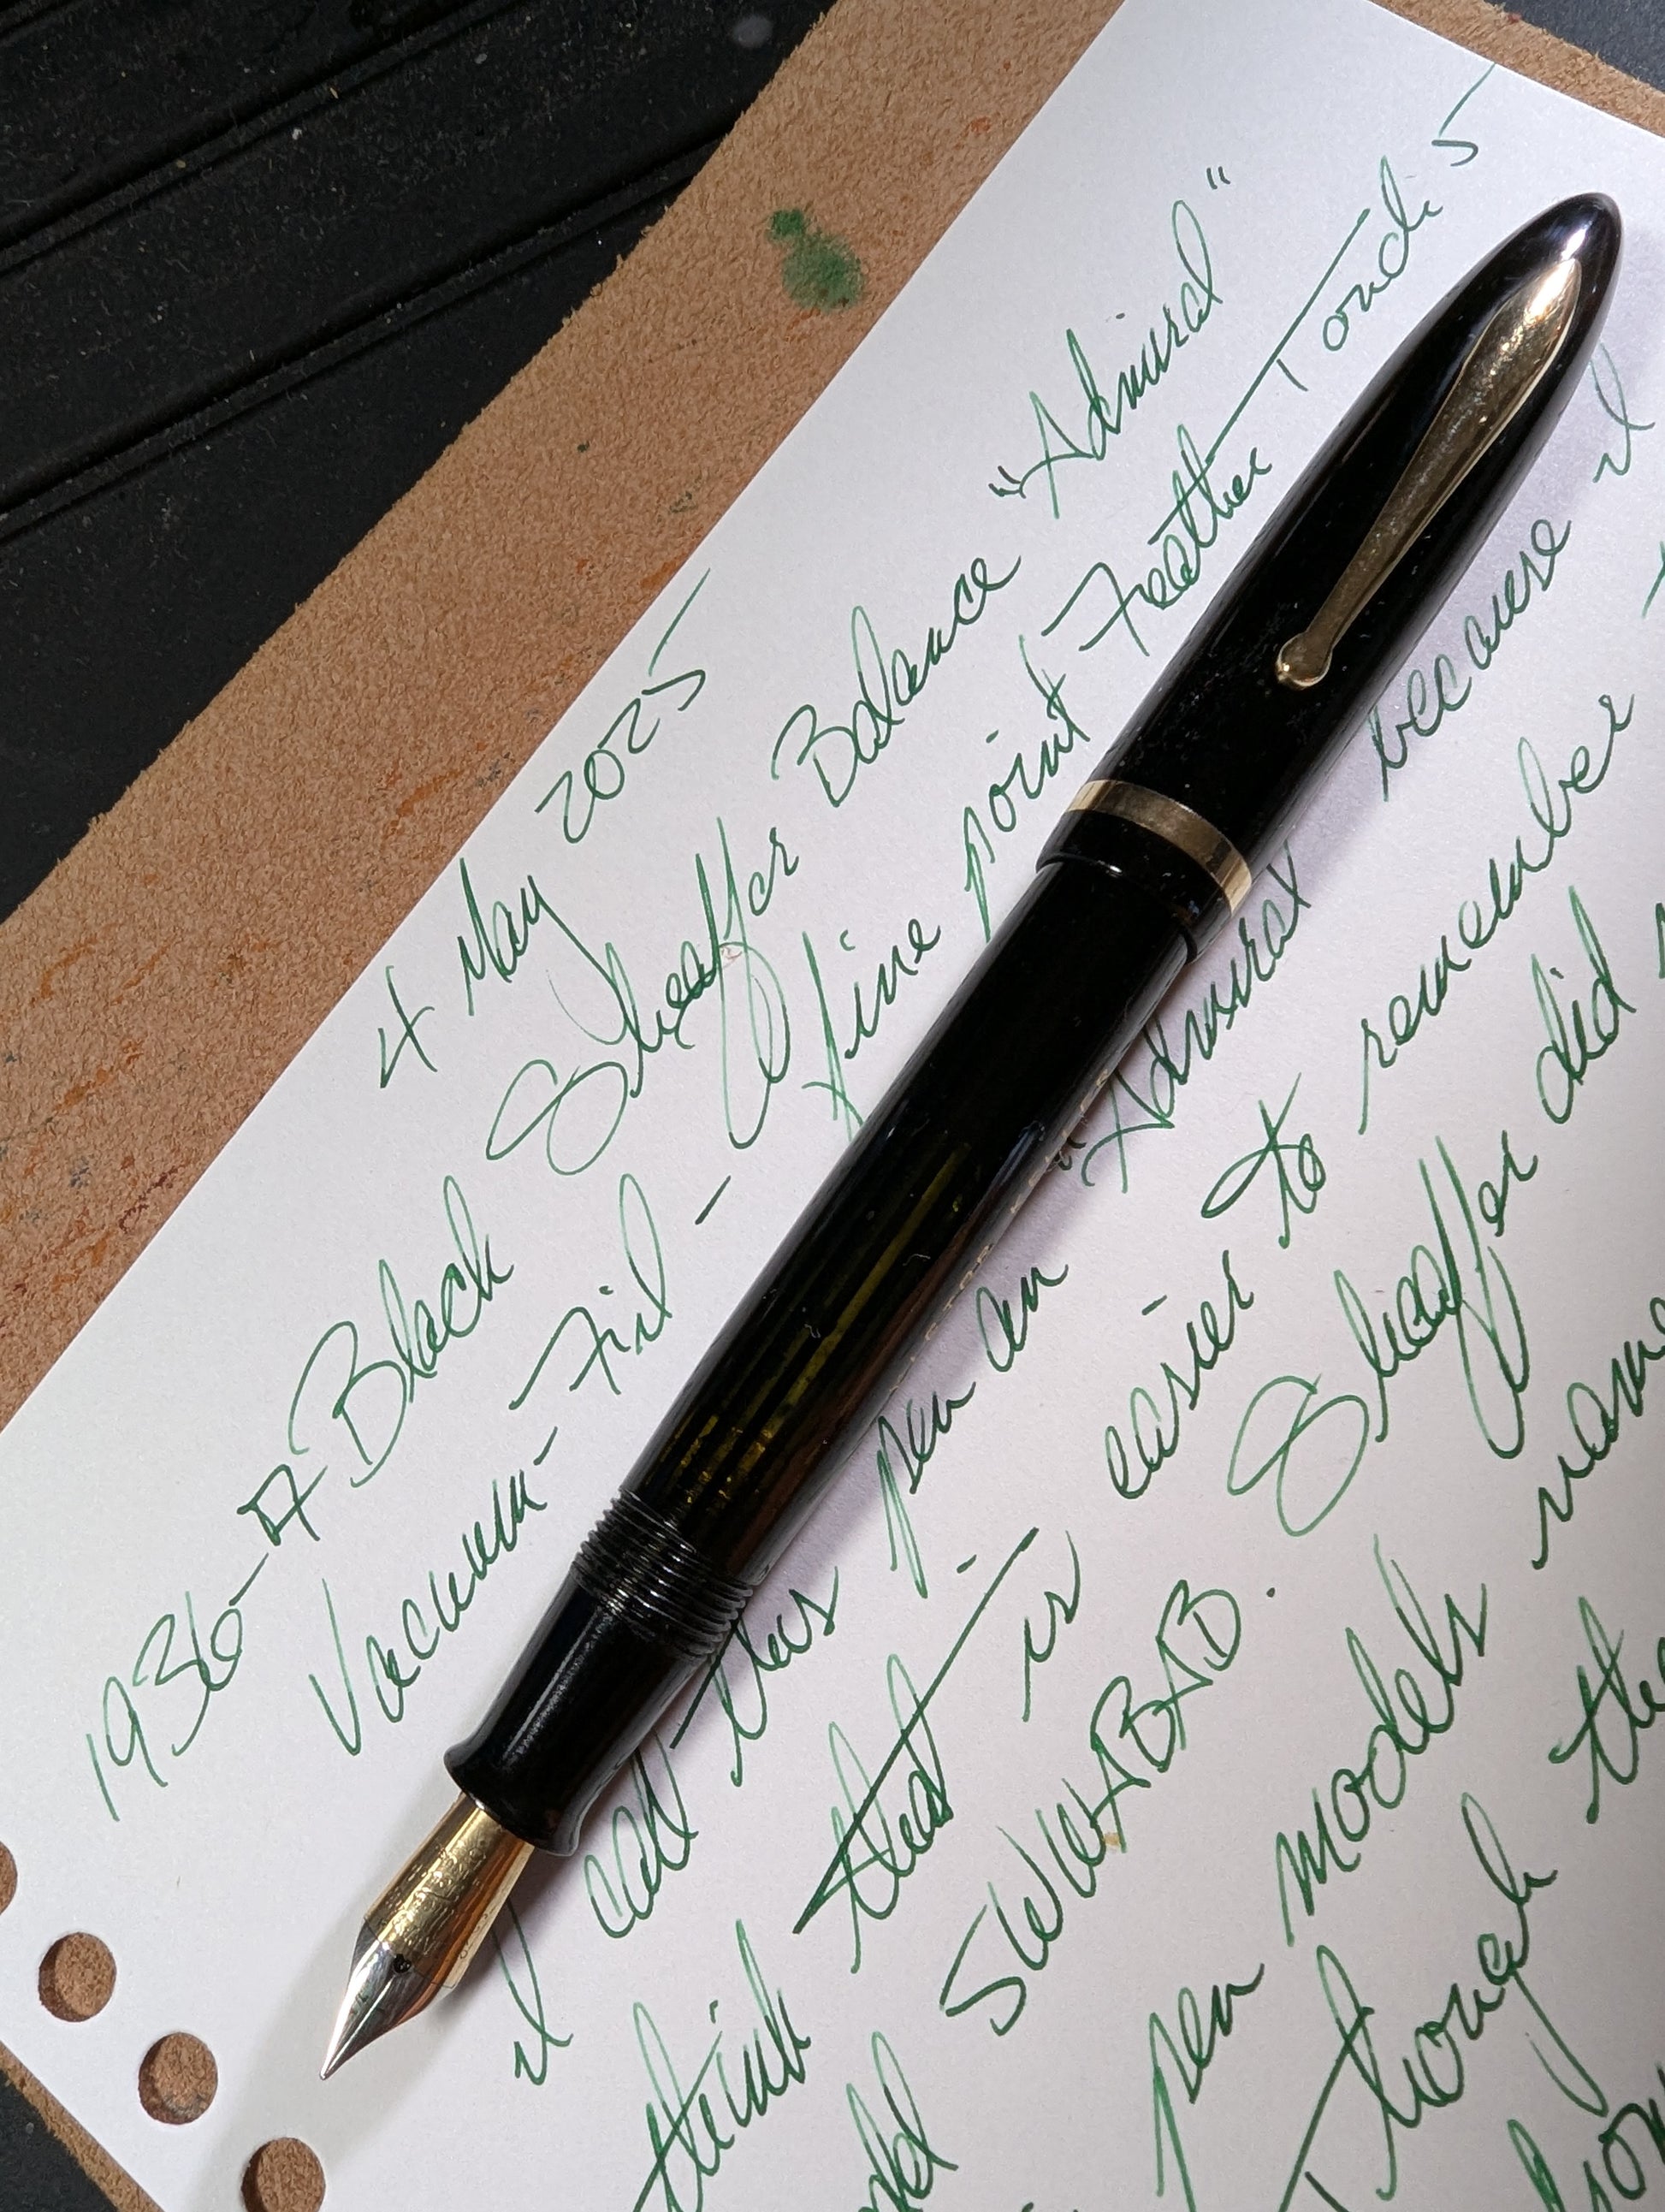 4 May 2025
1936-7 Black Sheaffer Balance "Admiral"
Vacuum-Fil - fine point Feather Touch 5
I call this pen an "Admiral because I
think that is easier to remember
SWWABAD. Sheaffer did
pen models name
Though the